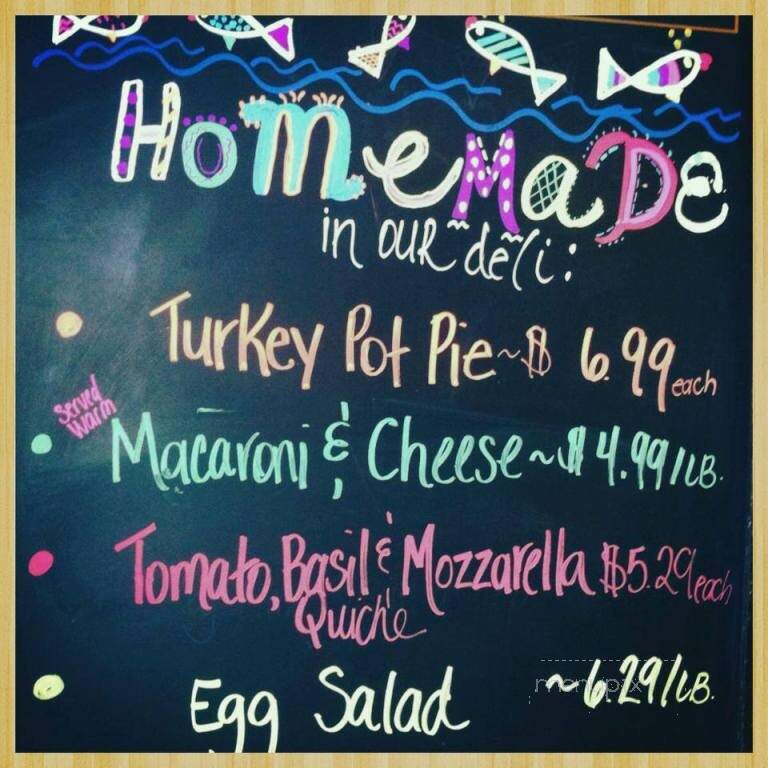 HOMEMADE
in our deli:
Turkey Pot Pie ~ $ 6.99 each
Served
Warm
Macaroni & Cheese ~ $ 4.99/LB.
Tomato, Basil & Mozzarella $5.29 each
Quiche
Egg Salad ~ 6.29/LB.
menupix